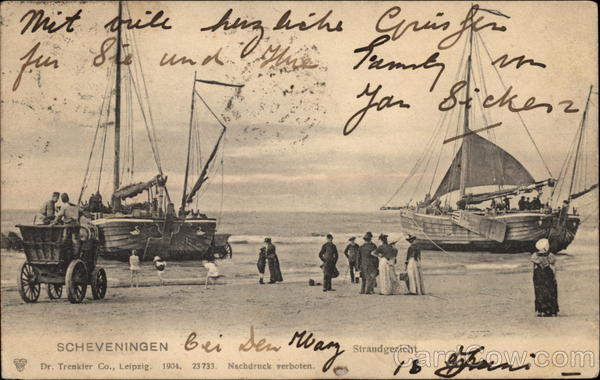 Mit viele herzliche Grüssen
für Sie und Ihre Family von
Jan Sickenz
SCHEVENINGEN bei Den Haag Strandgezicht.
Dr. Trenkler Co., Leipzig. 1904. 23733. Nachdruck verboten. 18 Juni
CardCow.com